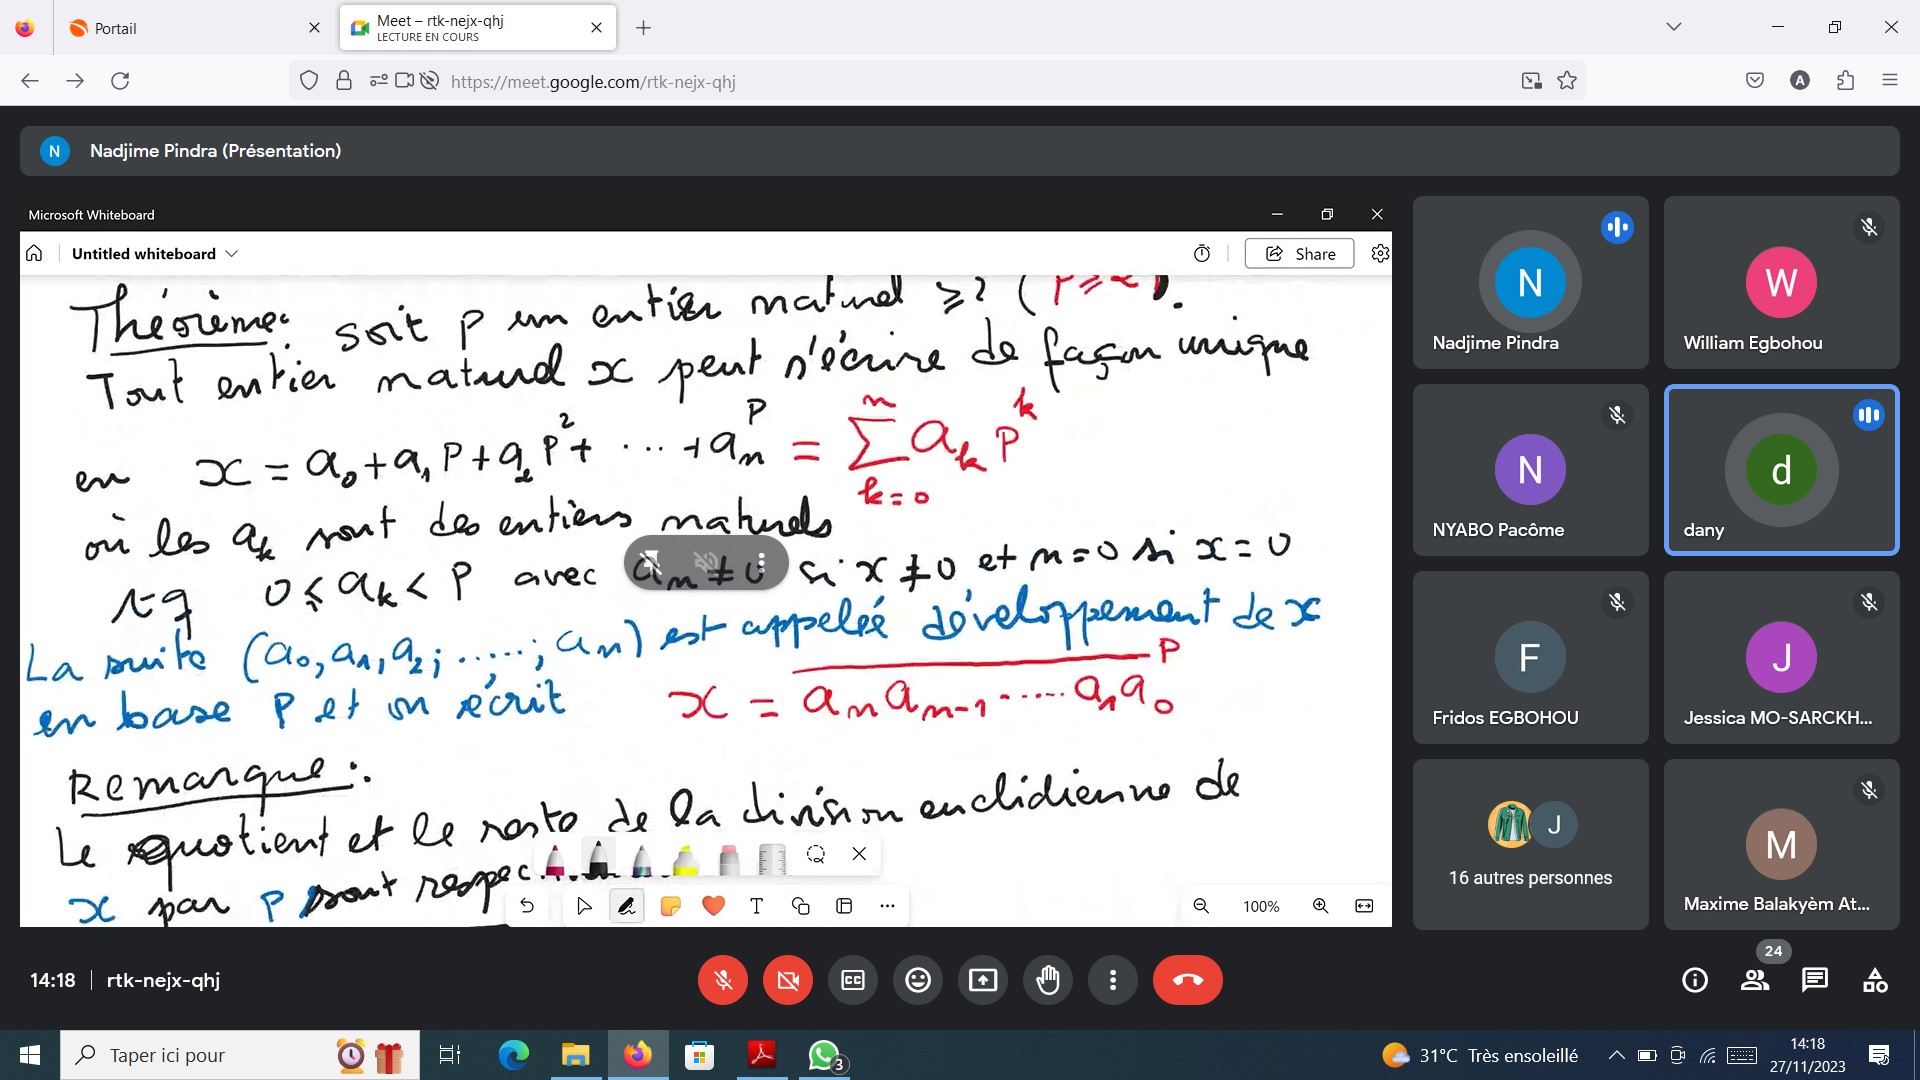 Portail
Meet – rtk-nejx-qhj
LECTURE EN COURS
https://meet.google.com/rtk-nejx-qhj
A
N Nadjime Pindra (Présentation)
Microsoft Whiteboard
Untitled whiteboard
Share
Théorème: soit p un entier naturel ≥2 (p≥2).
Tout entier naturel x peut s'écrire de façon unique
en x = a₀+a₁p+a₂p²+ ··· +aₙᵖ = ∑ₖ₌₀ⁿ aₖ pᵏ
où les aₖ sont des entiers naturels
tq 0 ≤ aₖ < p avec aₙ ≠ 0 si x ≠ 0 et n=0 si x = 0
La suite (a₀, a₁, a₂; ......; aₙ) est appelée développement de x
en base p et on écrit x = aₙ aₙ₋₁ ...... a₁ a₀ p
Remarque:
Le quotient et le reste de la division euclidienne de
x par p sont
100%
N
Nadjime Pindra
W
William Egbohou
N
NYABO Pacôme
d
dany
F
Fridos EGBOHOU
J
Jessica MO-SARCKH...
J
16 autres personnes
M
Maxime Balakyèm At...
14:18 | rtk-nejx-qhj
CC
24
Taper ici pour
3
31°C Très ensoleillé
14:18
27/11/2023